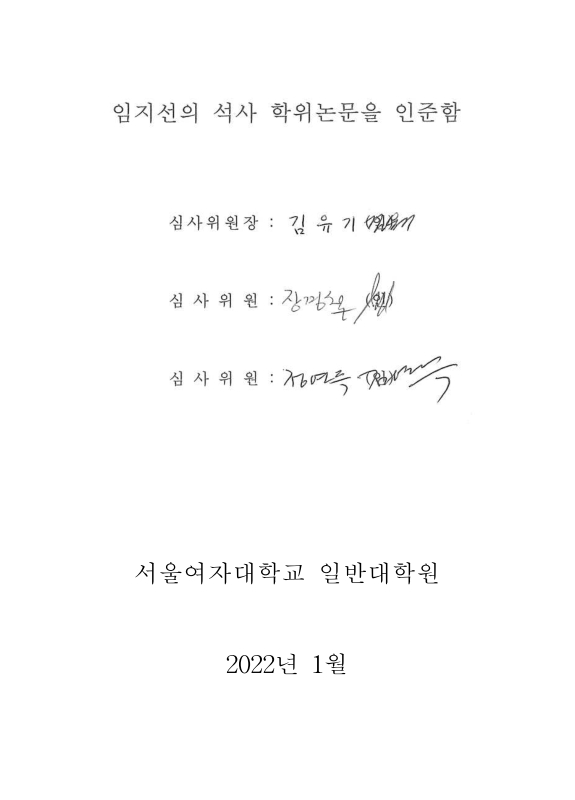 임지선의 석사 학위논문을 인준함
심사위원장 : 김 유 기
심 사 위 원 : 장경호
심 사 위 원 : 정연득
서울여자대학교 일반대학원
2022년 1월